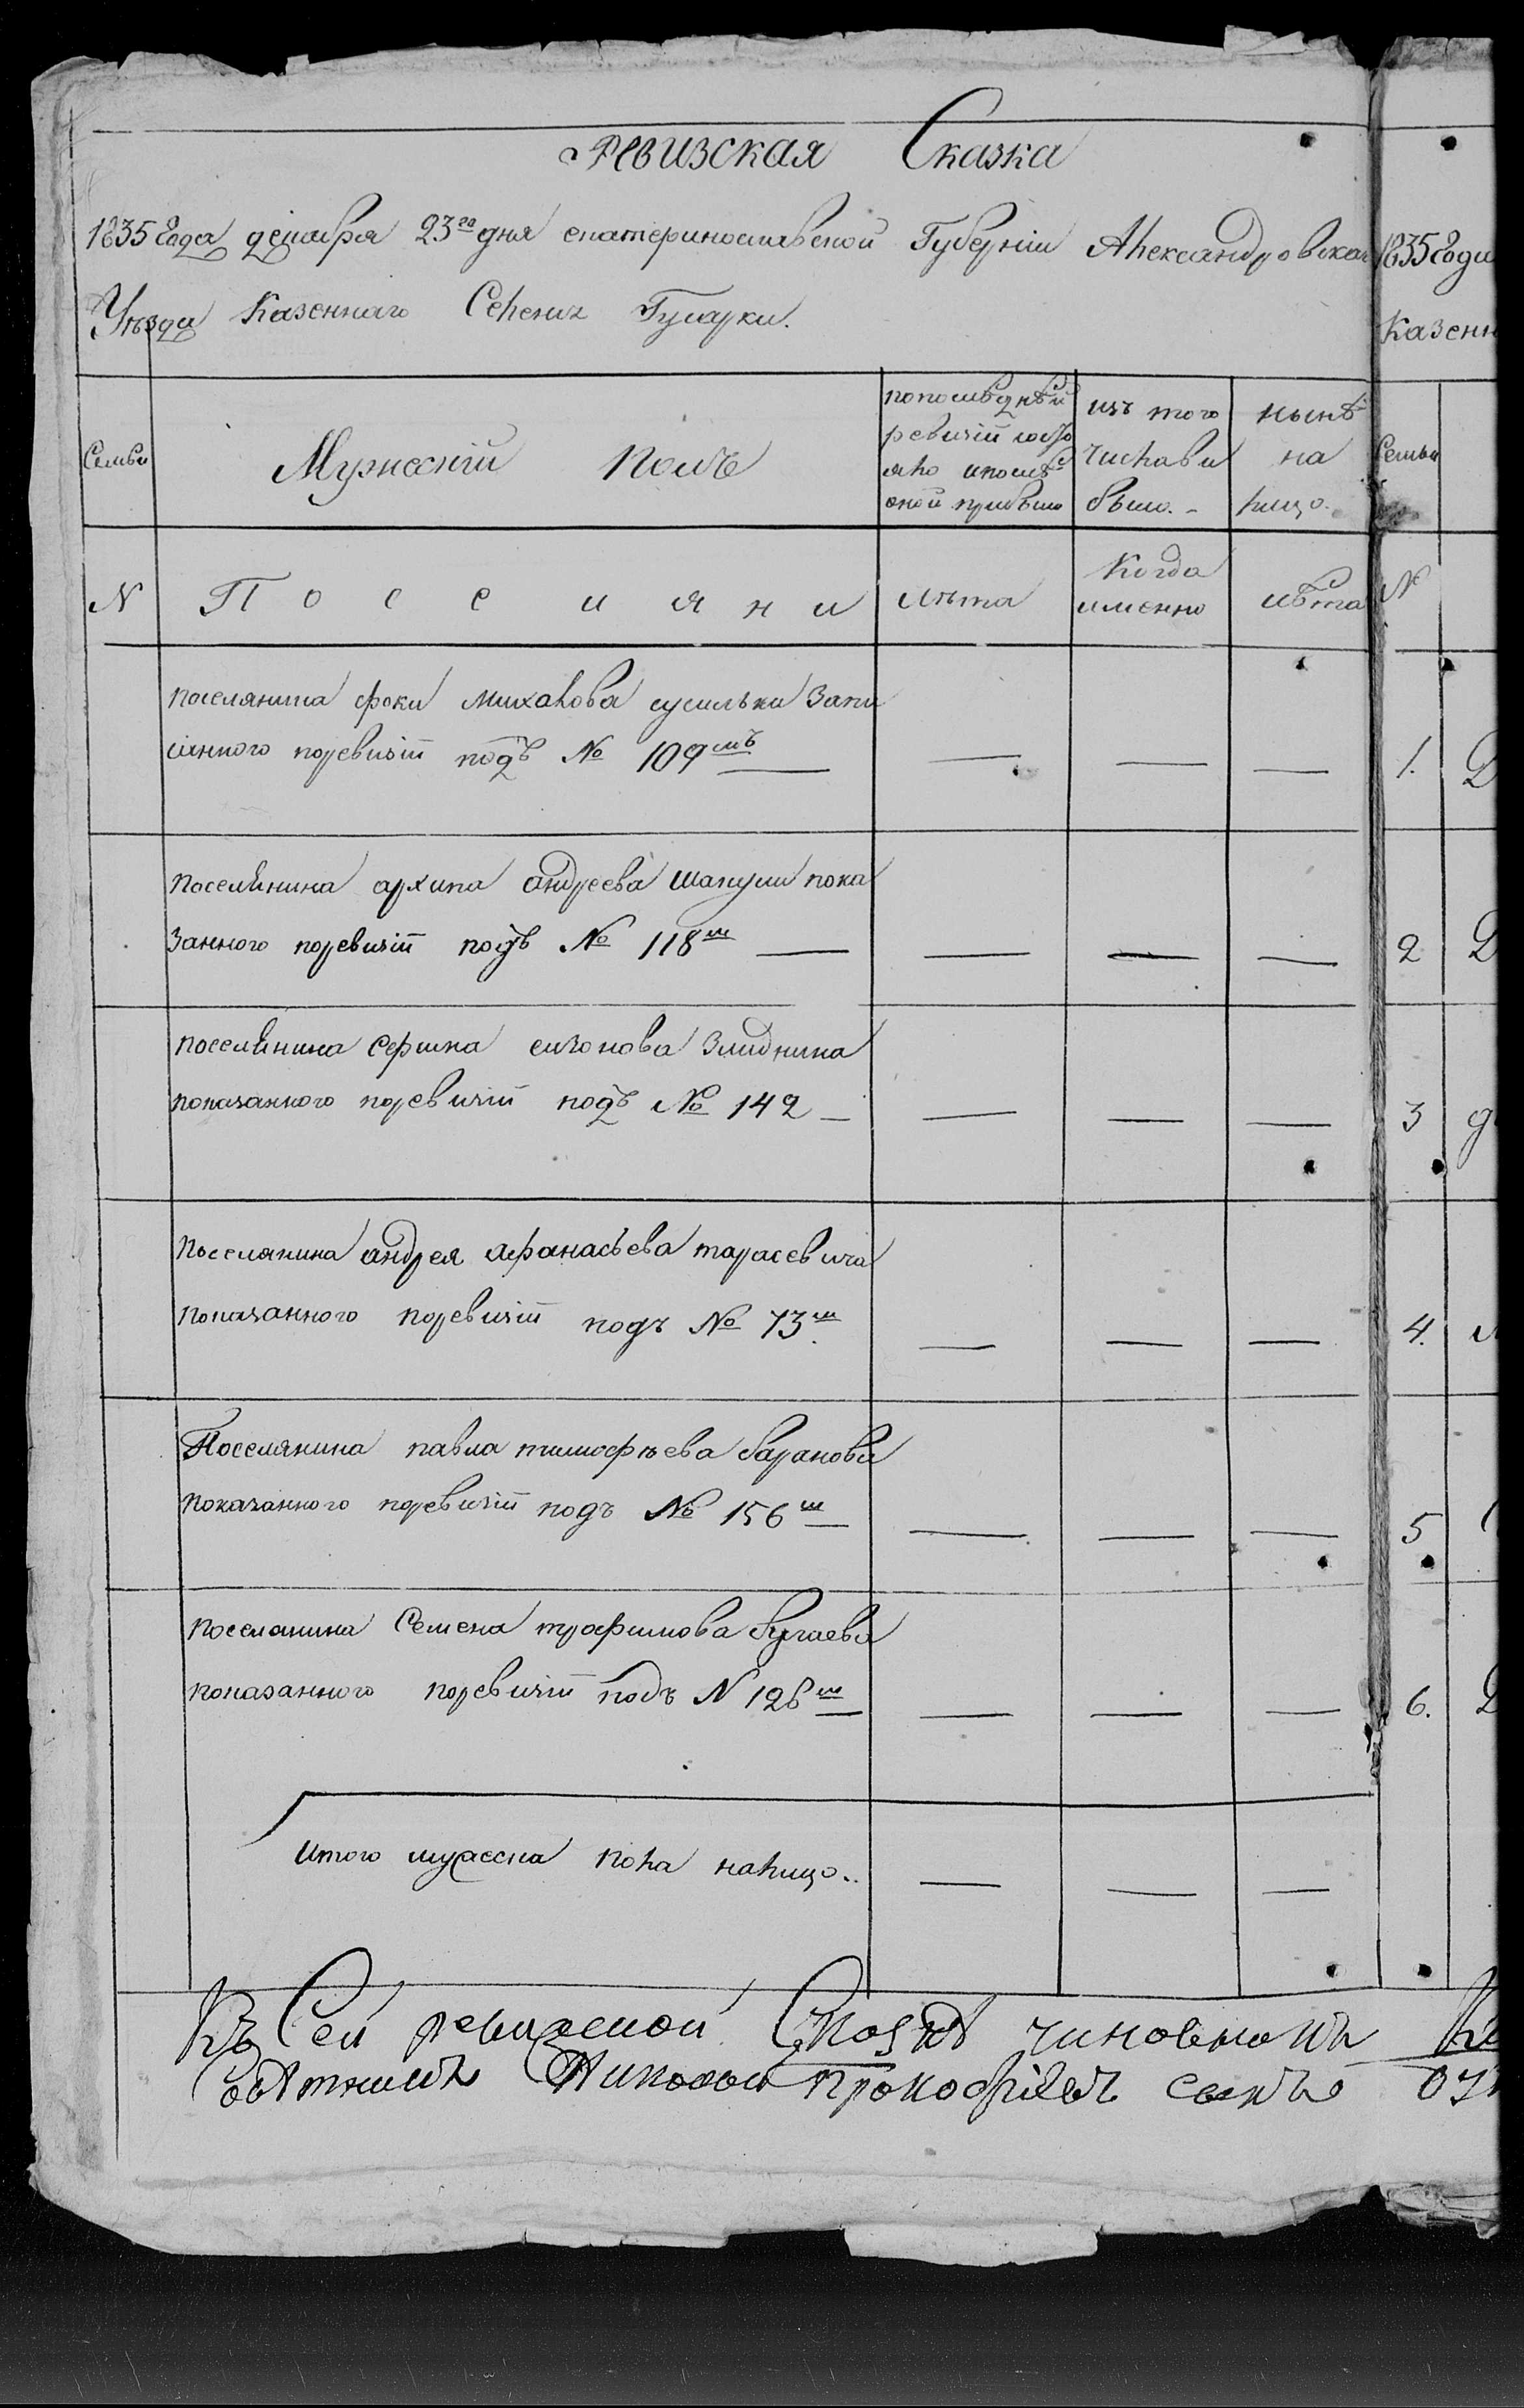 Ревизская Сказка
1835 Года декабря 23го дня екатеринославской Губернии Александровска
Уезда Казеннаго Селения Гусарки.
Семьи
Мужеский полъ
попоследней
ревизіи состо
яло ипослѣ
оной прибыло
изъ того
числа вы
было.
нынѣ
на
лицо.
N Поселяни лѣта Когда именно лѣта
поселянина фоки михалова сусилки запи
саннаго поревизіи подъ № 109мъ — — — —
поселянина архипа андреева шапули пока
занного поревизіи подъ № 118м — — — —
поселянина сафона
показанного поревизіи подъ № 142 — — — —
поселянина андрея афанасьева тарасевича
показанного поревизіи подъ № 73м — — —
Поселянина павла тимофѣева баранова
показанного поревизіи подъ № 156м — — —
поселянина Семена трофимова бугаева
показанного поревизіи подъ N 126м — — —
итого мужеска пола налицо.. — — —
Къ Сей ревизской Сказкѣ чиновникъ
Николай прокофіевъ сынъ
1835 Года
Казенн
Семьи
№
1. Д
2 Д
3 д
4.
5
6. Д